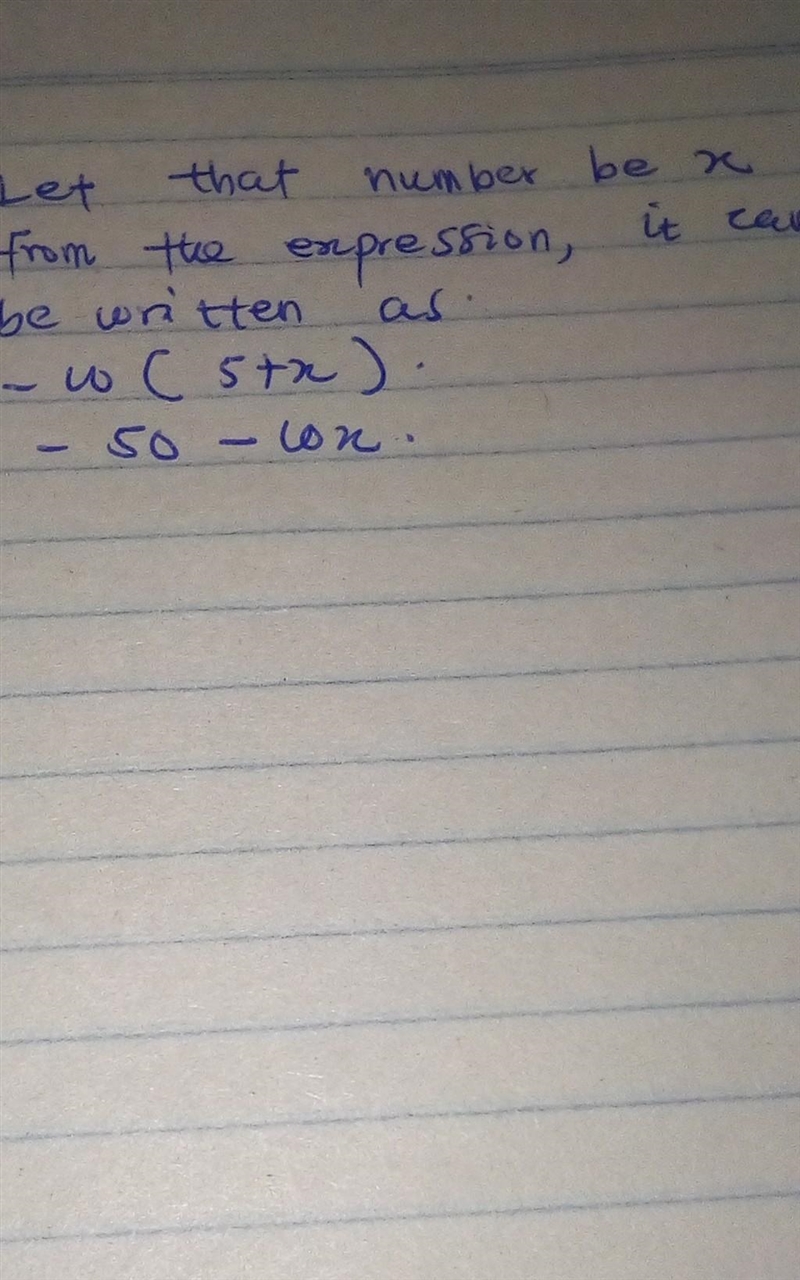 Let that number be x
from the expression, it can
be written as.
- 10 ( 5+x ).
- 50 - 10x.